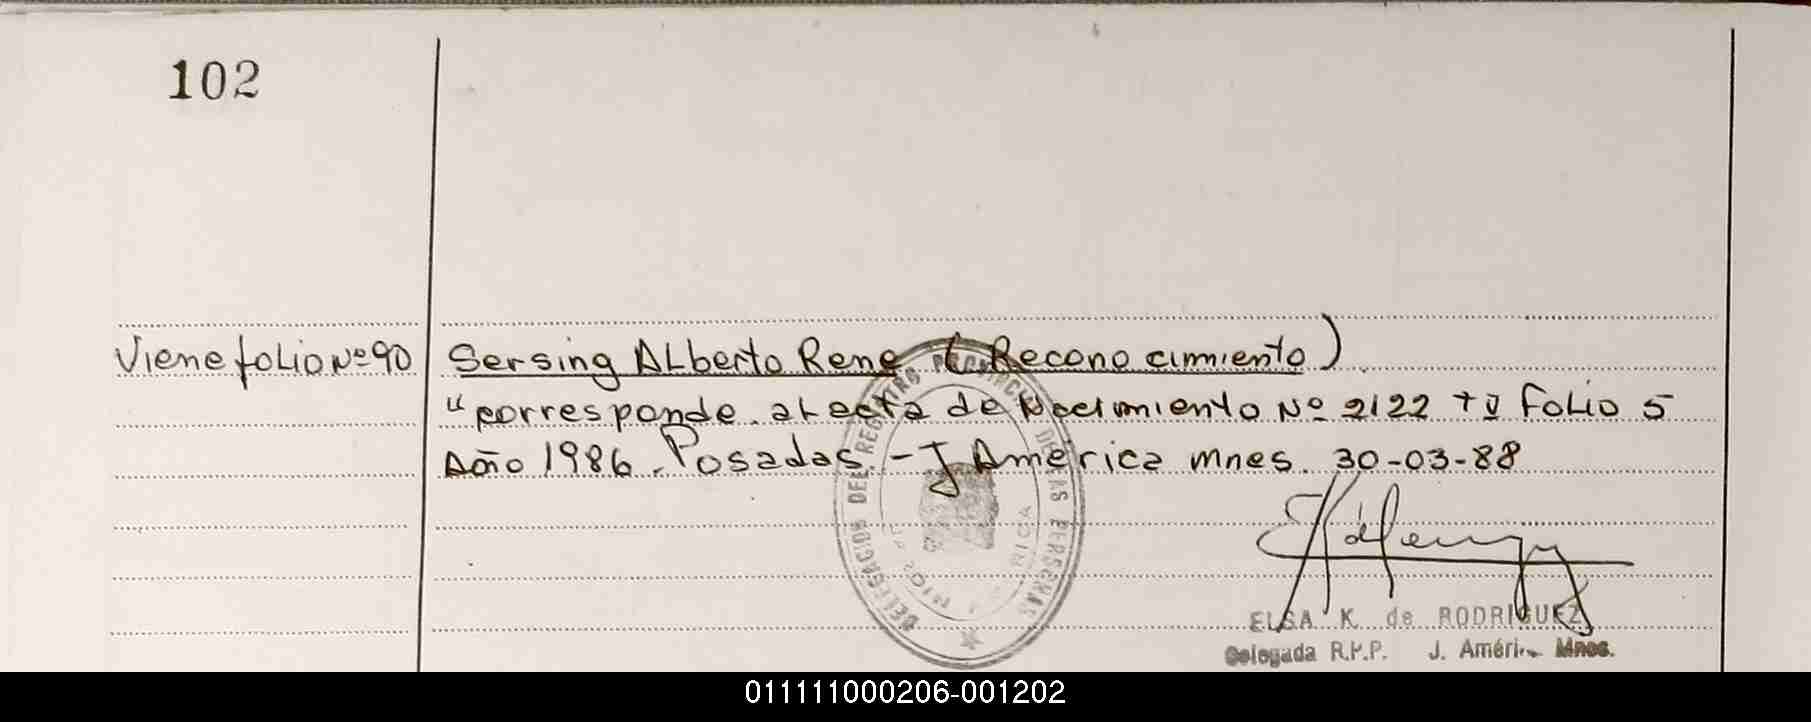 102
Viene folio Nº 90
Sersing Alberto Rene (Reconocimiento)
"corresponde al acta de Nacimiento Nº 2122 Tº V Folio 5
Año 1986. Posadas. - J América Mnes. 30-03-88
DELEGACION DEL REGISTRO PROVINCIAL DE LAS PERSONAS
ELSA K. de RODRIGUEZ
Delegada R.P.P. J. América Mnes.
011111000206-001202